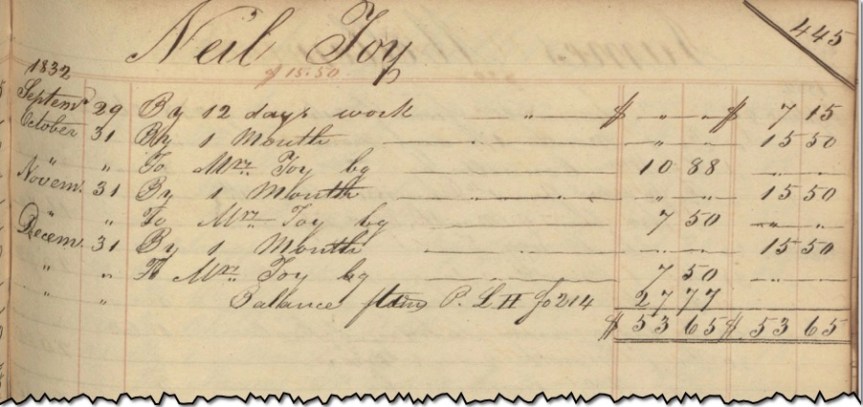 445
Neil Toy
$15.50
1832
Septemr 29 By 12 days work " $ " " $ 7 15
October 31 By 1 Month " " " 15 50
" " To Mrs. Toy bg 10 88
Novem. 31 By 1 Month " " 15 50
" " To Mrs. Toy bg 7 50
Decem. 31 By 1 Month 15 50
" " To Mrs. Toy bg 7 50
" " Ballance P. L H fo 214 27 77
$ 53 65 $ 53 65